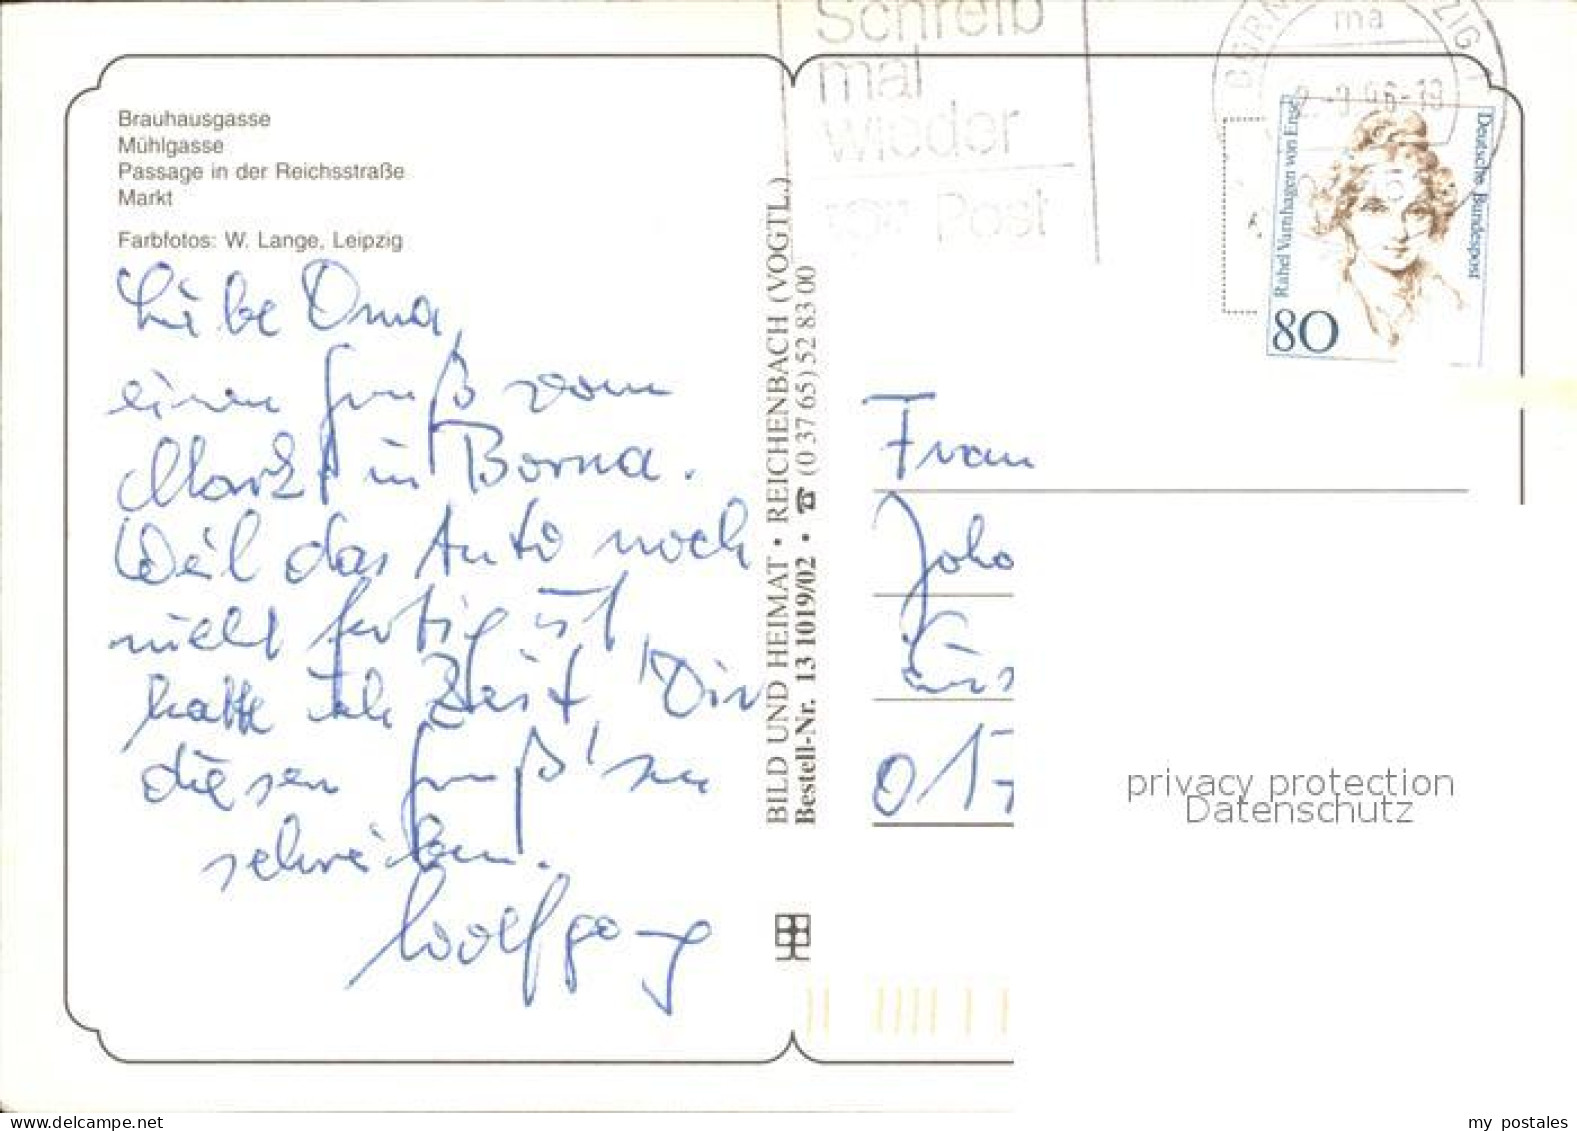 Schreib
mal
wieder
Post
ma
Brauhausgasse
Mühlgasse
Passage in der Reichsstraße
Markt
Farbfotos: W. Lange, Leipzig
Liebe Oma,
einen Gruß vom
Markt in Borna.
Weil das Auto noch
nicht fertig ist
hatte ich Zeit Dir
diesen Gruß zu
schreiben.
Wolfgang
BILD UND HEIMAT • REICHENBACH (VOGTL.)
Bestell-Nr. 13 1019/02 • ☎ (0 37 65) 52 83 00
Rahel Varnhagen von Ense
Deutsche Bundespost
80
Frau
Joha
017
privacy protection
Datenschutz
my postales